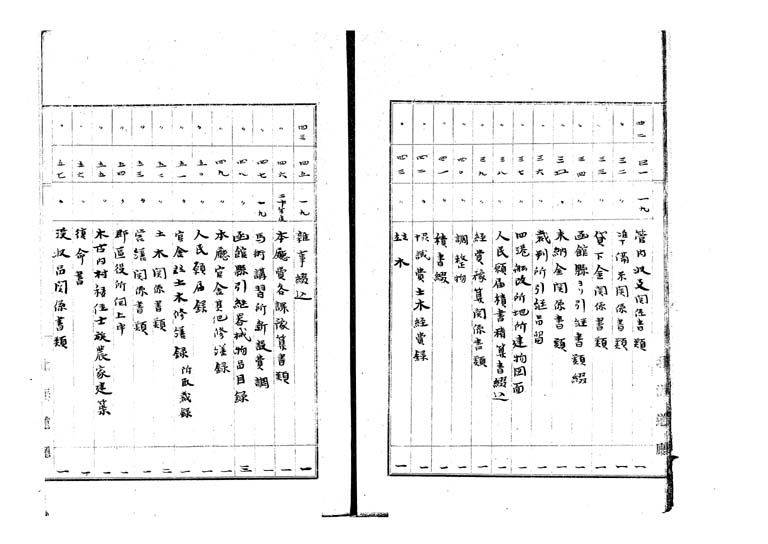 四二 三一 一九 管内収支関係書類 一
〃 三二 〃 準備米関係書類 一
〃 三三 〃 貸下金関係書類 一
〃 三四 〃 函館縣ヨリ引継書類綴 一
〃 三五 〃 未納金関係書類 一
〃 三六 〃 裁判所引継品 一
〃 三七 〃 四港船改所地所建物図面 一
〃 三八 〃 人民願届積書積算書綴込 一
〃 三九 〃 経費豫算関係書類 一
〃 四〇 〃 調整物 一
〃 四一 〃 積書綴 一
〃 四二 〃 費土木経費録 一
〃 四三 〃 土木 一
道廳
四三 四五 一九 雑事綴込 一
〃 四六 二十年度 本廳費各課豫算書類 一
〃 四七 一九 馬術講習所新設費調 一
〃 四八 〃 函館縣引継器械物品目録 三
〃 四九 〃 本廳官舎其他修繕録 一
〃 五〇 〃 人民願届録 一
〃 五一 〃 官舎並土木修繕録 所取裁録 一
〃 五二 〃 土木関係書類 二
〃 五三 〃 営繕関係書類 一
〃 五四 〃 郡區役所伺上申 一
〃 五五 〃 木古内村移住士族農家建築 一
〃 五六 〃 復命書 一
〃 五七 〃 没収品関係書類 一
北海道廳